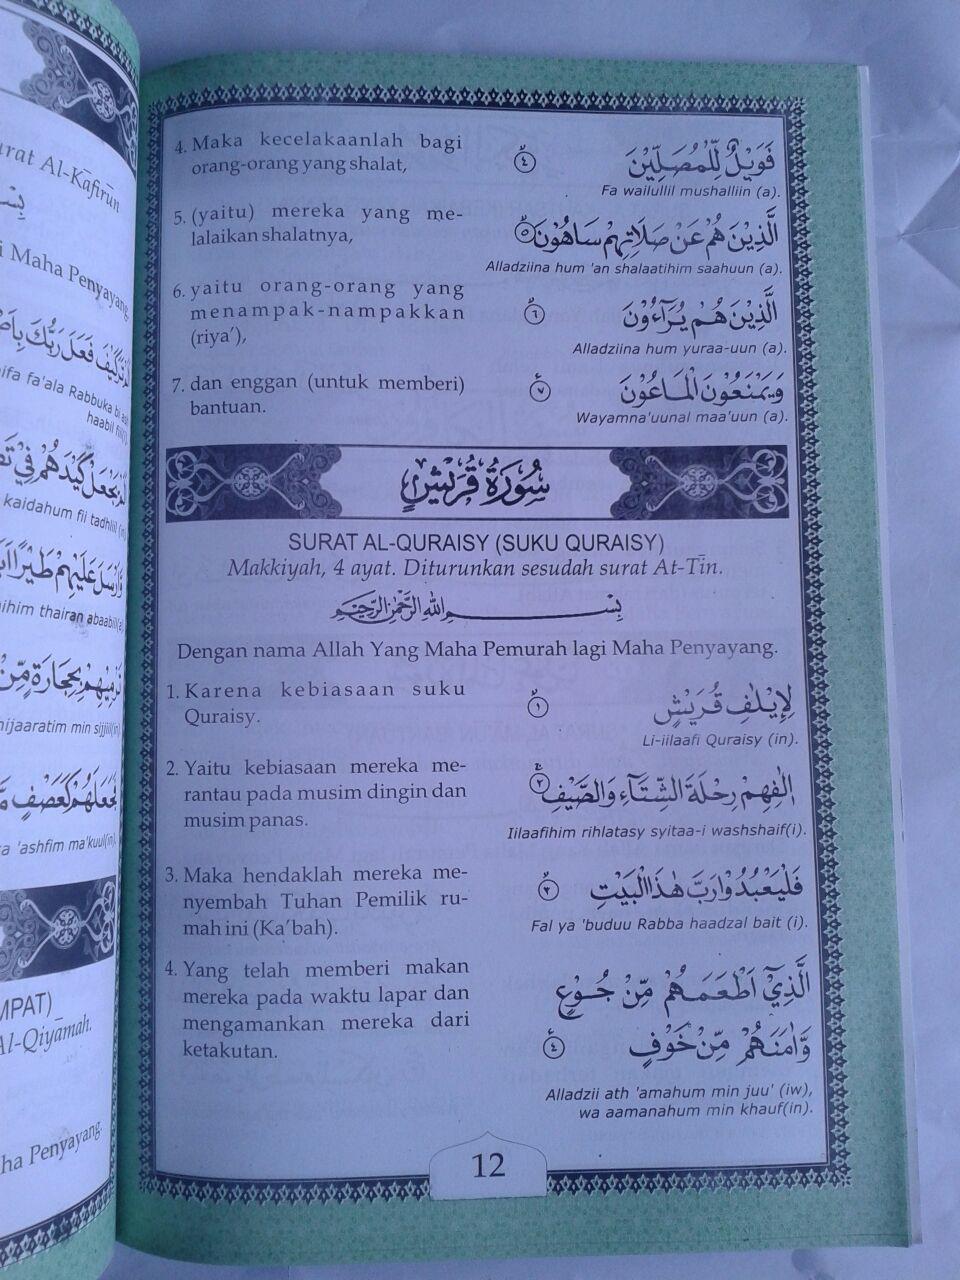 urat Al-Kāfirūn
i Maha Penyayang.
haabil fiil(i).
kaidahum fii tadhliil (in)
ihim thairan abaabiil(a)
hijaaratim min sijjiil(in)
ka 'ashfim ma'kuul(in).
MPAT)
Al-Qiyāmah.
ha Penyayang.
4. Maka kecelakaanlah bagi
orang-orang yang shalat,
فَوَيْلٌ لِّلْمُصَلِّيْنَ ٤
Fa wailullil mushalliin (a).
5. (yaitu) mereka yang me-
lalaikan shalatnya,
الَّذِيْنَ هُمْ عَنْ صَلَاتِهِمْ سَاهُوْنَ ٥
Alladziina hum 'an shalaatihim saahuun (a).
6. yaitu orang-orang yang
menampak-nampakkan
(riya'),
الَّذِيْنَ هُمْ يُرَآءُوْنَ ٦
Alladziina hum yuraa-uun (a).
7. dan enggan (untuk memberi)
bantuan.
وَيَمْنَعُوْنَ الْمَاعُوْنَ ٧
Wayamna'uunal maa'uun (a).
سُوْرَةُ قُرَيْشٍ
SURAT AL-QURAISY (SUKU QURAISY)
Makkiyah, 4 ayat. Diturunkan sesudah surat At-Tīn.
بِسْمِ اللهِ الرَّحْمٰنِ الرَّحِيْمِ
Dengan nama Allah Yang Maha Pemurah lagi Maha Penyayang.
1. Karena kebiasaan suku
Quraisy.
لِاِيْلٰفِ قُرَيْشٍ ١
Li-iilaafi Quraisy (in).
2. Yaitu kebiasaan mereka me-
rantau pada musim dingin dan
musim panas.
اٖلٰفِهِمْ رِحْلَةَ الشِّتَآءِ وَالصَّيْفِ ٢
Iilaafihim rihlatasy syitaa-i washshaif(i).
3. Maka hendaklah mereka me-
nyembah Tuhan Pemilik ru-
mah ini (Ka'bah).
فَلْيَعْبُدُوْا رَبَّ هٰذَا الْبَيْتِ ٣
Fal ya 'buduu Rabba haadzal bait (i).
4. Yang telah memberi makan
mereka pada waktu lapar dan
mengamankan mereka dari
ketakutan.
الَّذِيْٓ اَطْعَمَهُمْ مِّنْ جُوْعٍ
وَّاٰمَنَهُمْ مِّنْ خَوْفٍ ٤
Alladzii ath 'amahum min juu' (iw),
wa aamanahum min khauf(in).
12